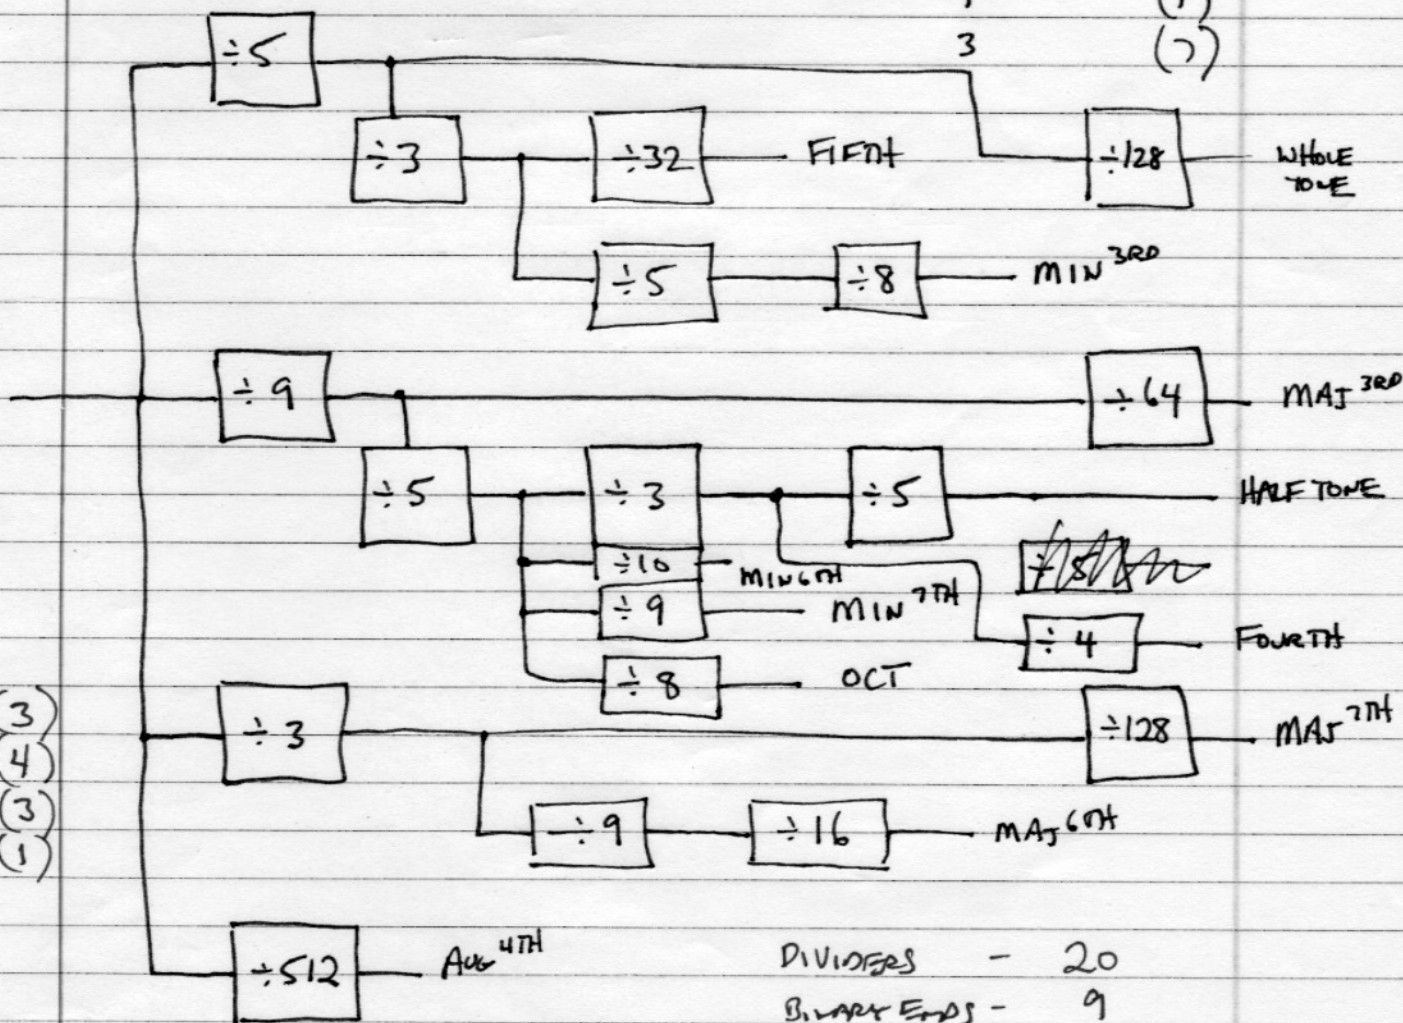 ÷5
3 (7)
÷3 ÷32 FIFTH ÷128 WHOLE
TONE
÷5 ÷8 MIN 3RD
÷9 ÷64 MAJ 3RD
÷5 ÷3 ÷5 HALF TONE
÷10 MIN 6TH
÷9 MIN 7TH
÷4 FOURTH
÷8 OCT
(3)
÷3 ÷128 MAJ 7TH
(4)
(3)
÷9 ÷16 MAJ 6TH
(1)
÷512 AUG 4TH
DIVIDERS - 20
BINARY ENDS - 9